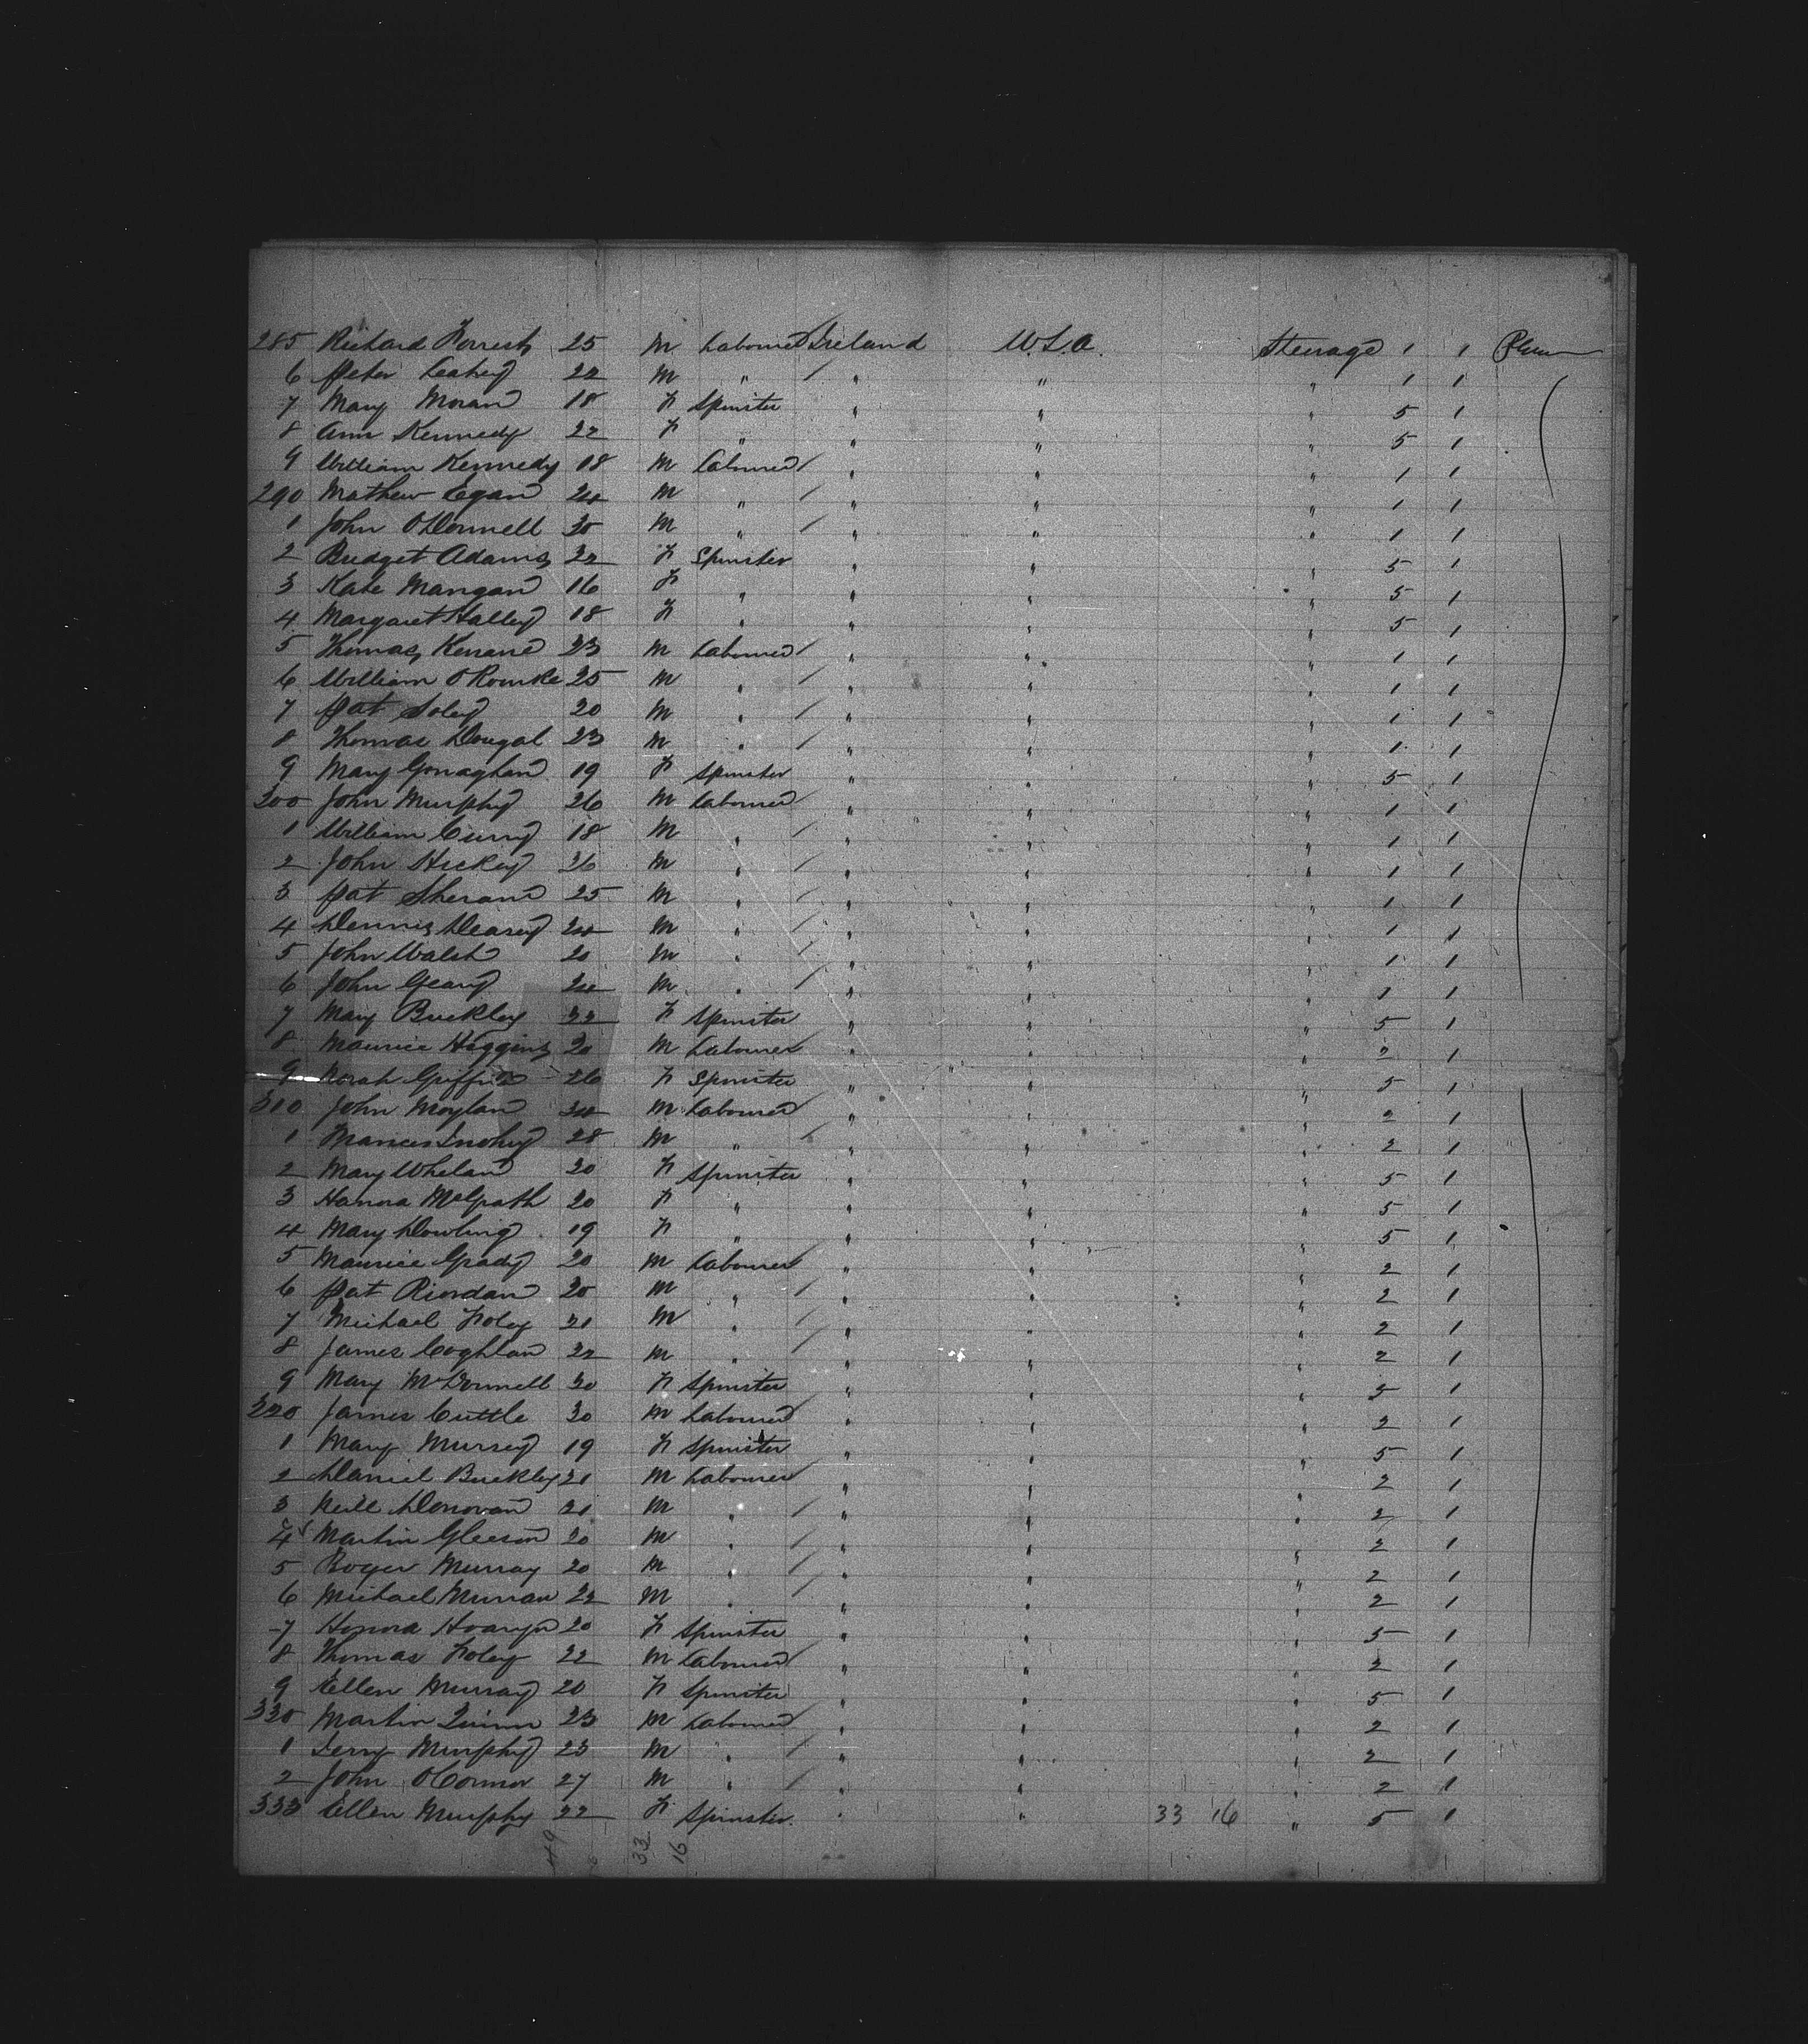 285 Richard Forrest 25 M Labourer Ireland U.S.A. Steerage 1 1
6 Peter Leahy 22 M " " " " 1 1
7 Mary Moran 18 F Spinster " " " 5 1
8 Ann Kennedy 22 F " " " " 5 1
9 William Kennedy 18 M Labourer " " " 1 1
290 Mathew Egan 24 M " " " " 1 1
1 John O'Donnell 30 M " " " " 1 1
2 Bridget Adams 22 F Spinster " " " 5 1
3 Kate Mangan 16 F " " " " 5 1
4 Margaret Halley 18 F " " " " 5 1
5 Thomas Kenane 23 M Labourer " " " 1 1
6 William O'Rourke 25 M " " " " 1 1
7 Pat Foley 20 M " " " " 1 1
8 Thomas Dougal 23 M " " " " 1 1
9 Mary Gonaghan 19 F Spinster " " " 5 1
300 John Murphy 26 M Labourer " " " 1 1
1 William Curry 18 M " " " " 1 1
2 John Hickey 26 M " " " " 1 1
3 Pat Sheran 25 M " " " " 1 1
4 Dennis Deasey 24 M " " " " 1 1
5 John Walsh 20 M " " " " 1 1
6 John Geary 24 M " " " " 1 1
7 Mary Buckley 22 F Spinster " " " 5 1
8 Maurice Higgins 20 M Labourer " " " 2 1
9 Norah Griffin 26 F Spinster " " " 5 1
310 John Moylan 24 M Labourer " " " 2 1
1 28 M " " " " 2 1
2 Mary Whelan 20 F Spinster " " " 5 1
3 Hanna McGrath 20 F " " " " 5 1
4 Mary Dowling 19 F " " " " 5 1
5 Maurice Grady 20 M Labourer " " " 2 1
6 Pat Riordan 20 M " " " " 2 1
7 Michael Foley 21 M " " " " 2 1
8 James Coghlan 22 M " " " " 2 1
9 Mary McDonnell 20 F Spinster " " " 5 1
320 James Cuttle 30 M Labourer " " " 2 1
1 Mary Mursey 19 F Spinster " " " 5 1
2 Daniel Buckley 21 M Labourer " " " 2 1
3 Neill Donovan 21 M " " " " 2 1
4 Martin Gleeson 20 M " " " " 2 1
5 Roger Murray 20 M " " " " 2 1
6 Michael Murran 22 M " " " " 2 1
7 Honora 20 F Spinster " " " 5 1
8 Thomas Foley 22 M Labourer " " " 2 1
9 Ellen Murray 20 F Spinster " " " 5 1
330 Martin Quinn 23 M Labourer " " " 2 1
1 Jerry Murphy 23 M " " " " 2 1
2 John O'Connor 27 M " " " " 2 1
333 Ellen Murphy 22 F Spinster " " 33 16 " 5 1
49 33 16